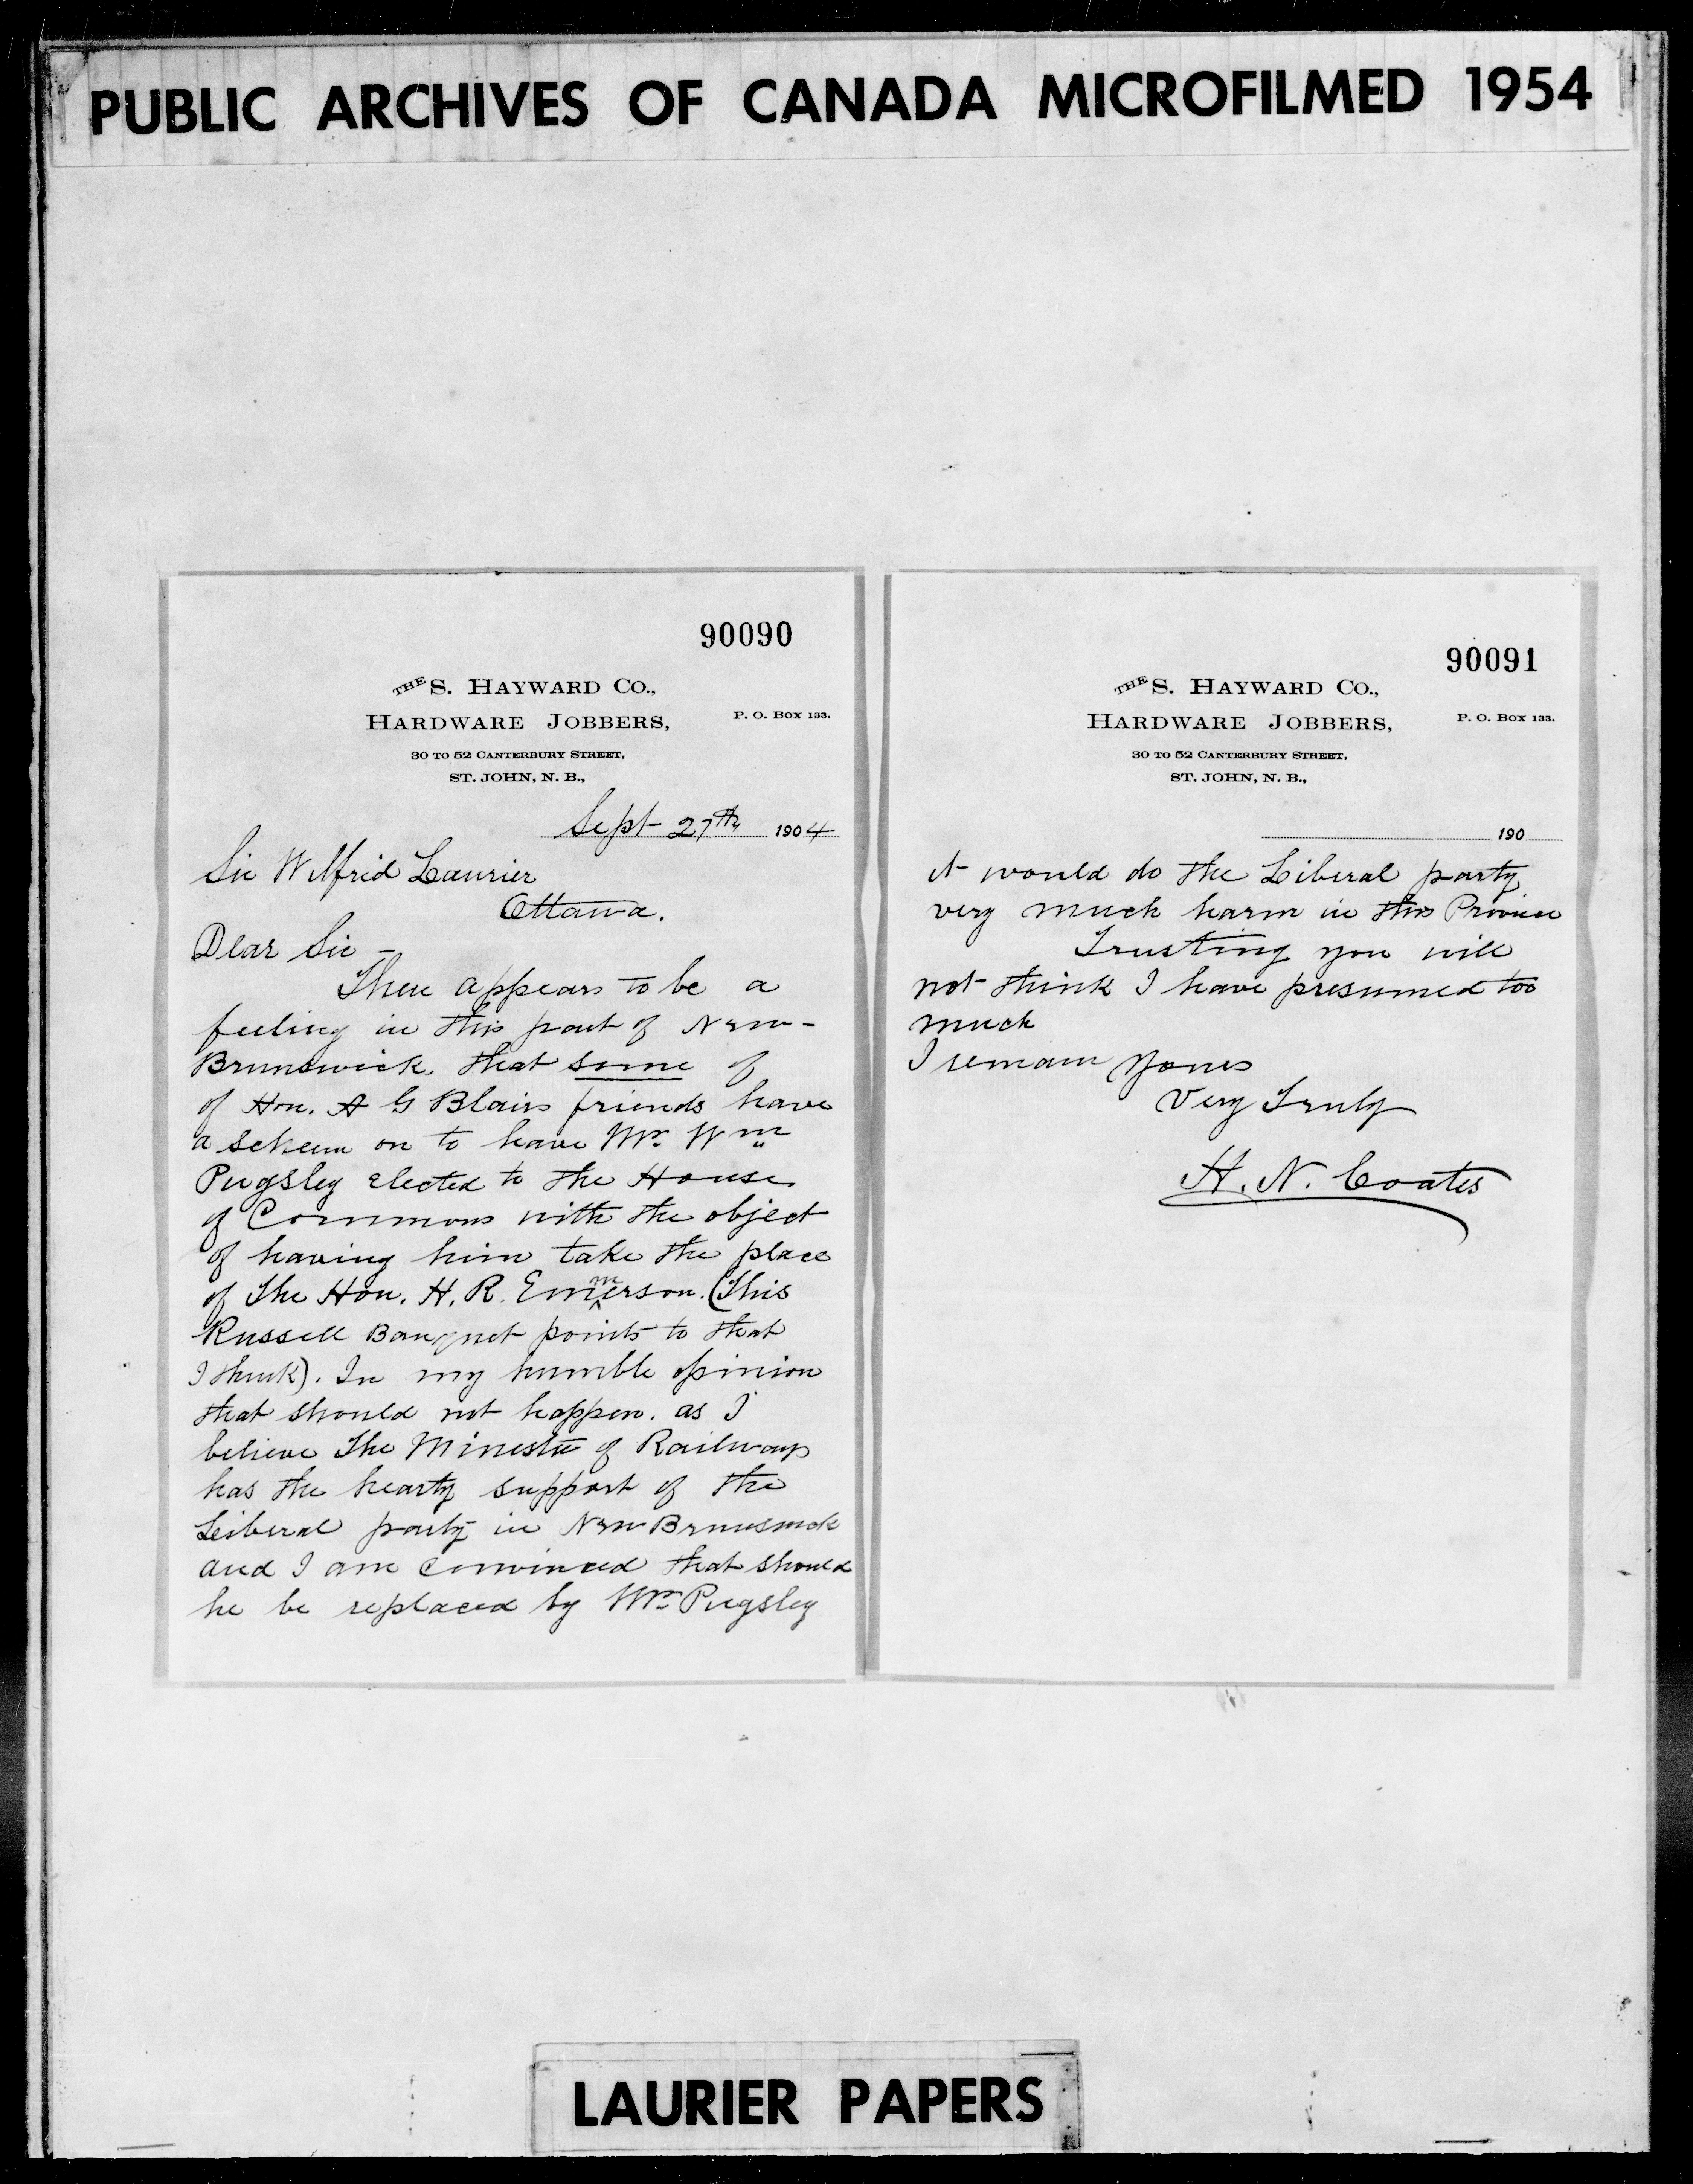 PUBLIC ARCHIVES OF CANADA MICROFILMED 1954
90090
THE S. HAYWARD CO.,
HARDWARE JOBBERS,
P. O. BOX 133.
30 TO 52 CANTERBURY STREET,
ST. JOHN, N. B.,
Sept 27th 1904
Sir Wilfrid Laurier
Ottawa.
Dear Sir -
There appears to be a
feeling in this part of New-
Brunswick, that some of
of Hon. A G Blairs friends have
a scheem on to have Mr. Wm
Pugsley elected to the House
of Commons with the object
of having him take the place
of The Hon. H. R. Emmerson. (This
Russell Banquet points to that
I think). In my humble opinion
that should not happen. as I
believe The Minester of Railways
has the hearty support of the
Leiberal party in New Brunswick
and I am convinced that should
he be replaced by Mr. Pugsley
90091
THE S. HAYWARD CO.,
HARDWARE JOBBERS,
P. O. BOX 133.
30 TO 52 CANTERBURY STREET,
ST. JOHN, N. B.,
190
it would do the Liberal party
very much harm in this Province
Trusting you will
not think I have presumed too
much
I remain Yours
Very Truly
H. N. Coates
LAURIER PAPERS